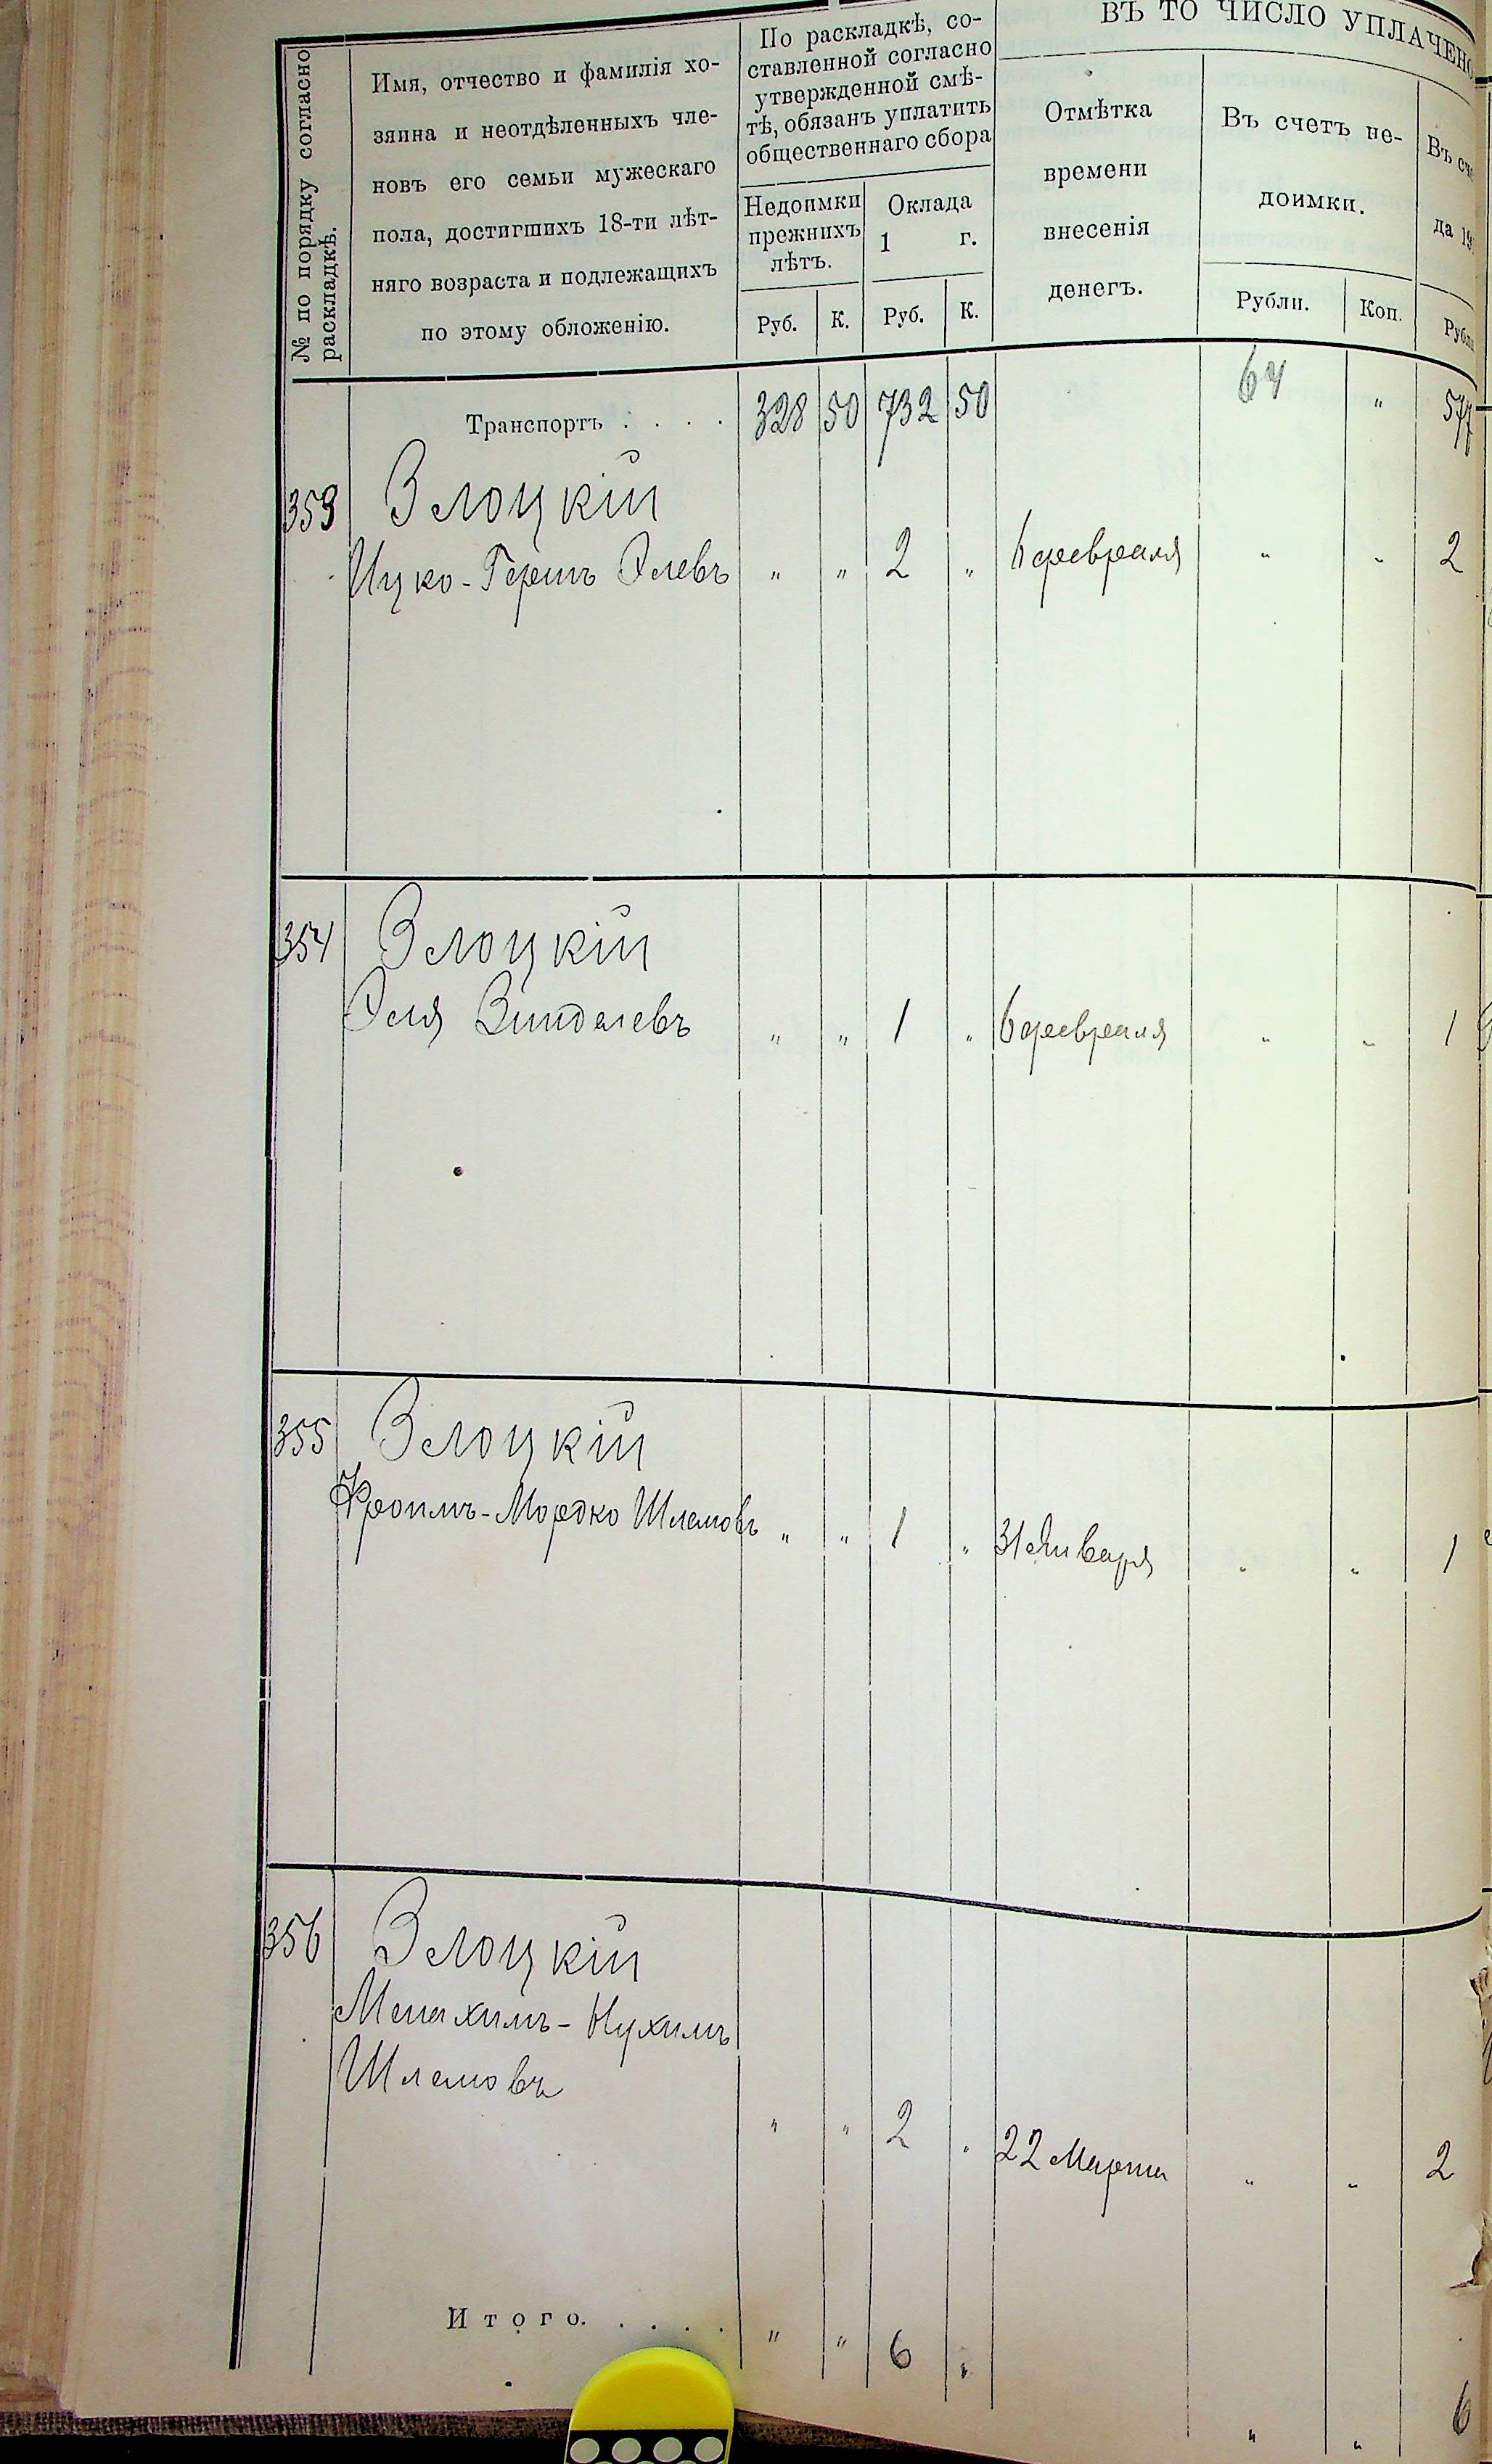 № по порядку согласно
раскладкѣ.
Имя, отчество и фамилія хо-
зяина и неотдѣленныхъ чле-
новъ его семьи мужескаго
пола, достигшихъ 18-ти лѣт-
няго возраста и подлежащихъ
по этому обложенію.
По раскладкѣ, со-
ставленной согласно
утвержденной смѣ-
тѣ, обязанъ уплатить
общественнаго сбора
Недоимки
прежнихъ
лѣтъ.
Оклада
1 г.
Руб. К. Руб. К.
ВЪ ТО ЧИСЛО УПЛАЧЕНО
Отмѣтка
времени
внесенія
денегъ.
Въ счетъ не-
доимки.
Рубли. Коп.
Въ сче
да 19
Рубли
Транспортъ . . . . 328 50 732 50 64 " 577
353 Злоцкій
Ицко-Гершъ Элевъ " " 2 " 6 февраля " " 2
354 Злоцкій
Эля Зинделевъ " " 1 " 6 февраля " " 1
355 Злоцкій
Фроимъ-Мордко Шлемовъ " " 1 " 31 Января " " 1
356 Злоцкій
Менахимъ-Нухимъ
Шлемовъ
" " 2 " 22 Марта " " 2
Итого. . . . . " " 6 " " " 6